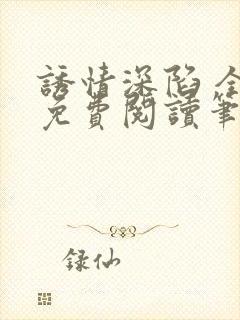 誘情深陷 全
免費閱讀筆
録仙